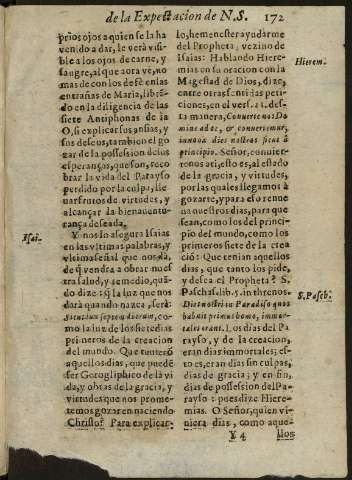 de la Expectacion de N.S. 172
prios ojos a quien se la ha
venido a dar, le verà visi-
ble a los ojos de carne, y
sangre, al que aora vè, no
mas de con los de fè en las
entrañas de Maria, librã-
do en la diligencia de las
siete Antiphonas de la
O, si explicar sus ansias, y
sus deseos, tambien el go
zar de la possession de las
esperanças, que son, reco-
brar la vida del Parayso
perdido por la culpa, lle-
uar frutos de virtudes, y
alcançar la bienauentu-
rança deseada.
Y nos lo asegura Isaias
en las vltimas palabras, y
vltima señal que nos dà,
de q̃ vendra a obrar nues
tra salud, y remedio, quã-
do dize: q̃ la luz que nos
darà quando nazca, serà:
Sicut lux septem dierum, co-
mo la luz de los siete dias
primeros de la creacion
del mundo. Que tuuierõ
aquellos dias, que puedẽ
ser Gerogliphico de la vi
da, y obras de la gracia, y
virtudes que nos prome-
temos gozar en naciendo
Christo? Para explicar-
Isai.
lo, hemenester ayudarme
del Propheta, vezino de
Isaias: Hablando Hiere-
mias en su oracion con la
Magestad de Dios, dize,
entre otras santidas peti-
ciones, en el vers. 21. des-
ta manera, Conuerte nos Do
mine ad te, & conuertemur,
innoua dies nostros sicut à
principio. Señor, conuier-
tenos a ti, esto es, al estado
de la gracia, y virtudes,
por las quales llegamos à
gozarte, y para eso renue
ua nuestros dias, para que
sean, como los del princi-
pio del mundo, como los
primeros siete de la crea-
ciõ: Que tenian aquellos
dias, que tanto los pide,
y desea el Propheta? S.
Paschas. lib. 5. in threnos.
Dies nostri in Paradiso quos
habuit primus homo, immor-
tales erant. Los dias del Pa
rayso, y de la creacion,
eran dias immortales; es-
to es, eran dias sin culpas,
dias de gracia; y en fin,
dias de possession del Pa-
rayso: pues dize Hiere-
mias. O Señor, quien vi-
niera dias, como aque-
Hierem.
S. Pasch.
Y 4 llos